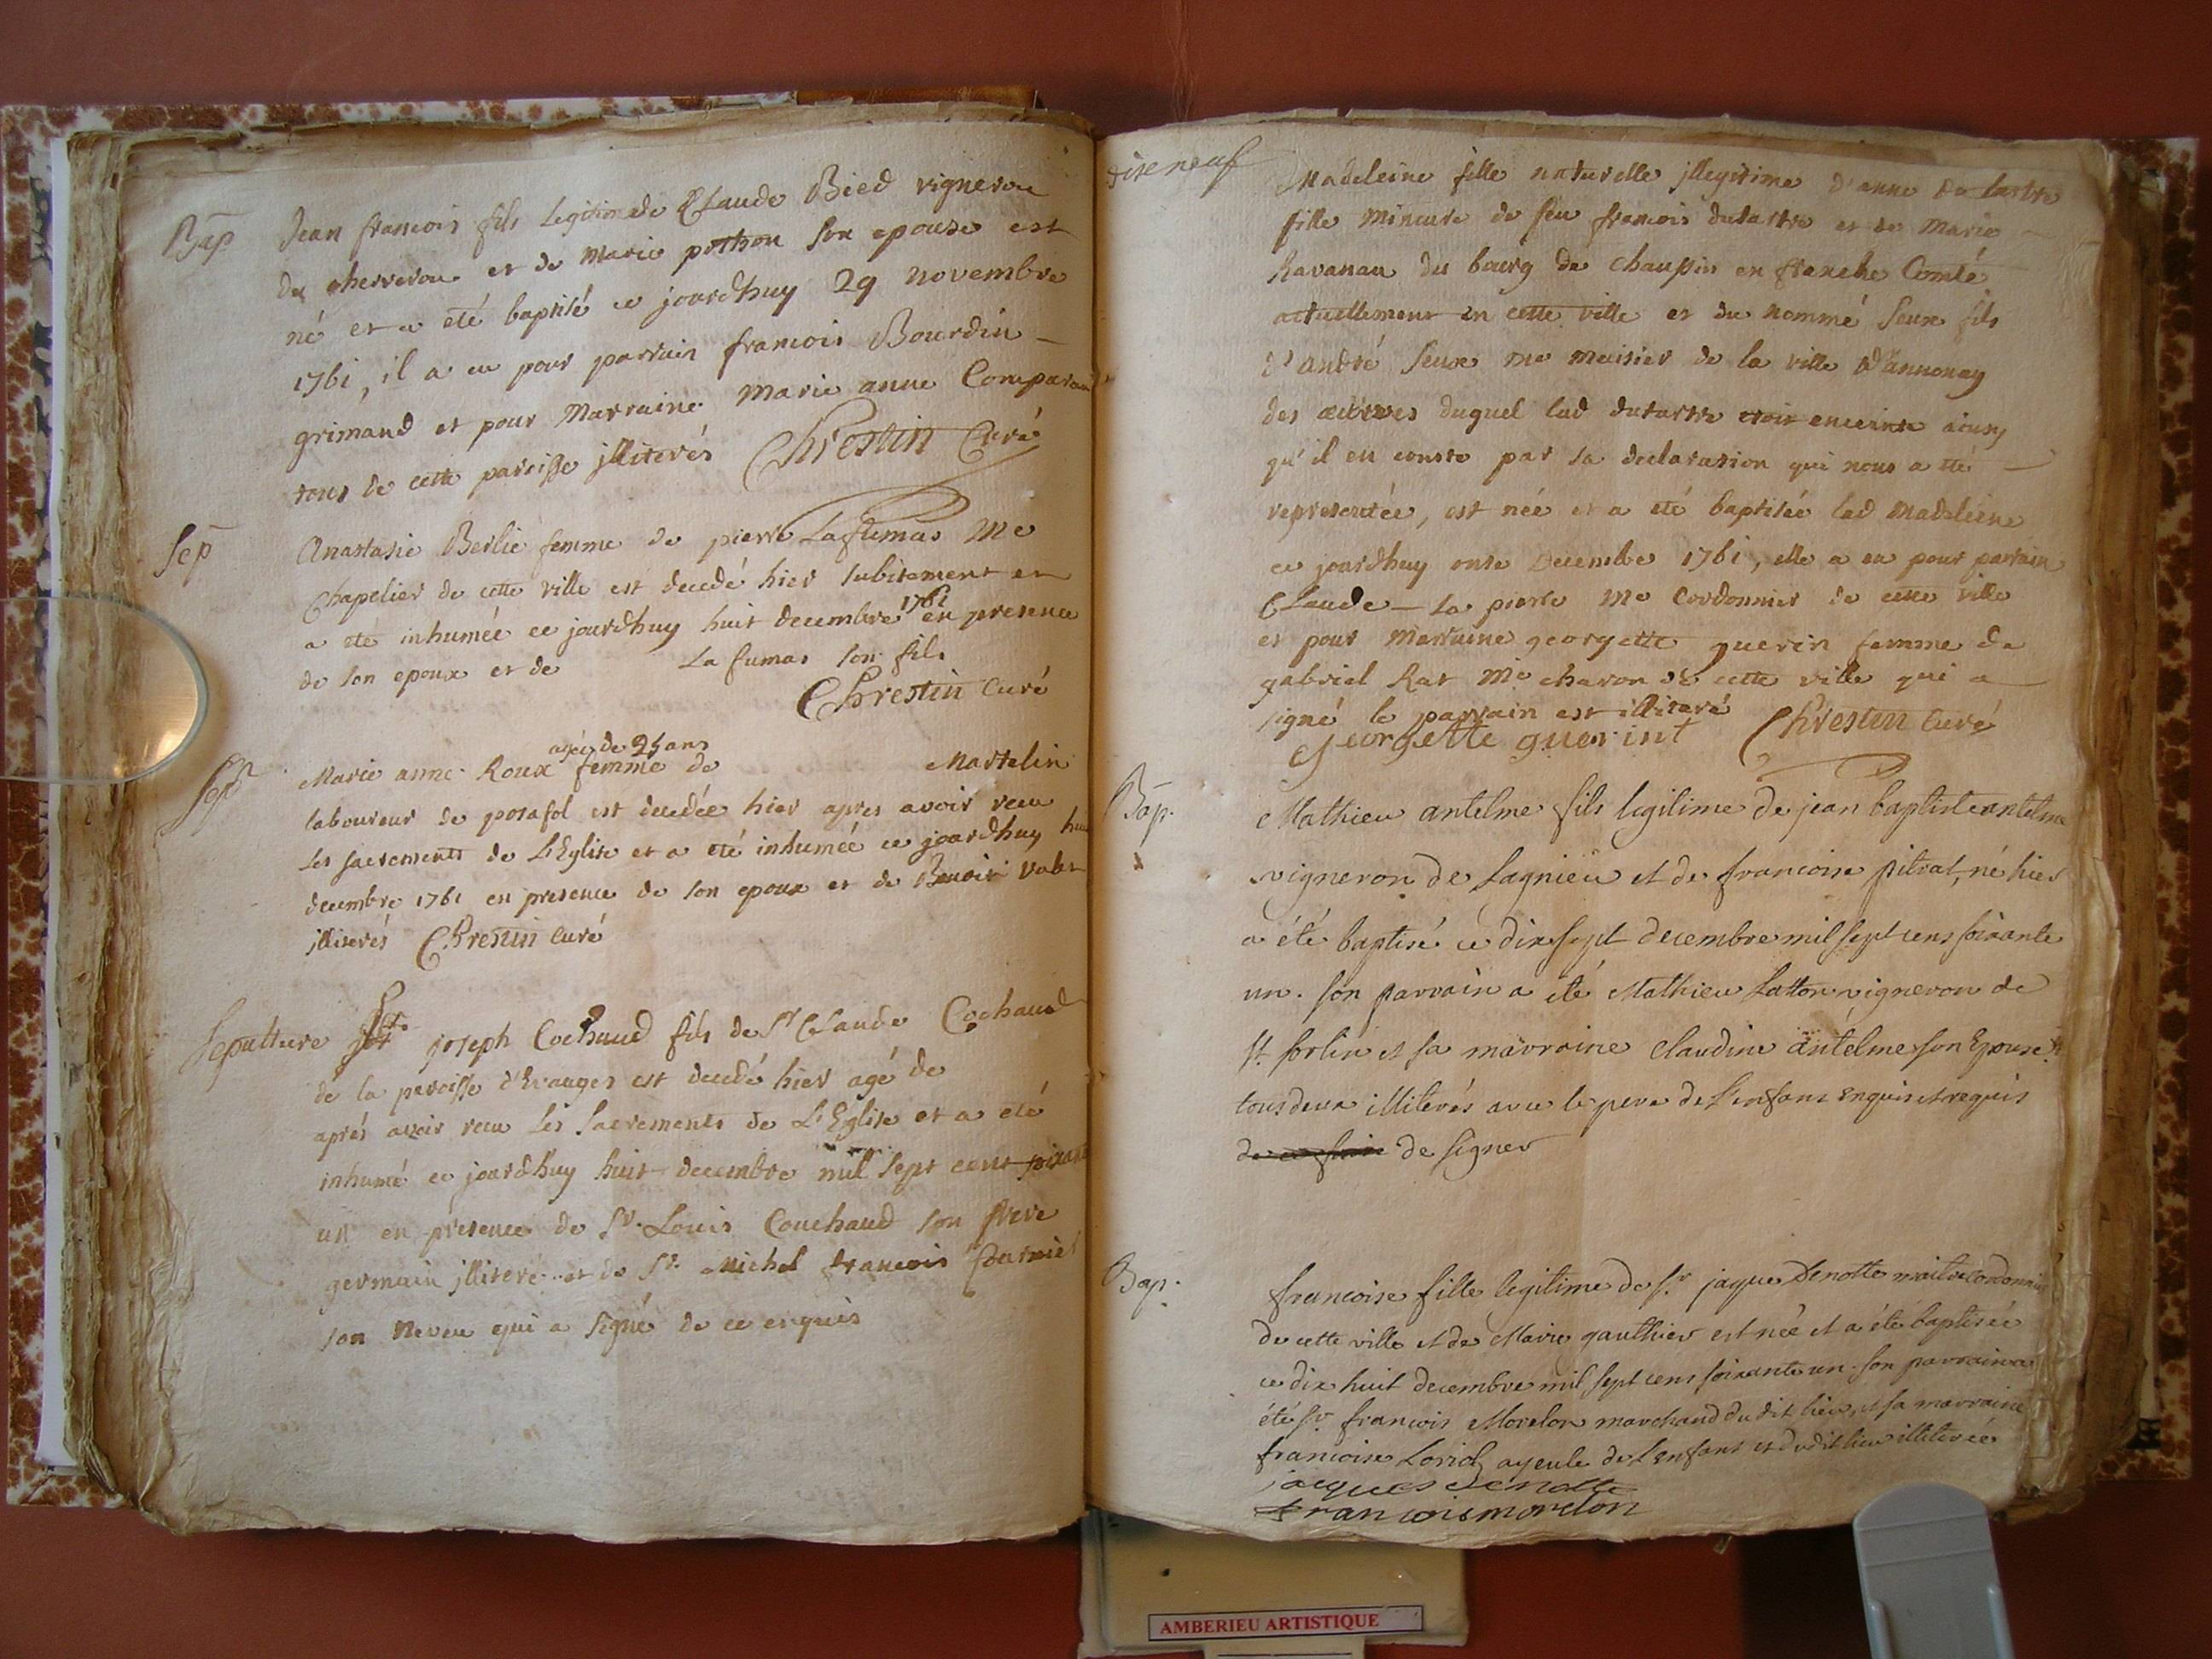 Bap
Jean francois fils legitime de Claude Bied vigneron
du cherveron et de Marie pothon son epouse est
né et a eté baptisé ce jourdhuy 29 novembre
1761, il a eu pour parrain francois Bourdin
grimand et pour Marraine Marie anne Comparan
tous de cette paroisse jlliterés Chrestin Curé
Sep
Anastasie Berlie femme de pierre Lafumas Me
Chapelier de cette ville est decedé hier subitement et
a eté inhumée ce jourdhuy huit decembre 1761 en presence
de son epoux et de La fumas son fils
Chrestin Curé
Sep
agée de 25 ans
Marie anne Roux femme de Martelin
laboureur de posafol est decedée hier apres avoir recu
les sacrements de L'Eglise et a eté inhumée ce jourdhuy
decembre 1761 en presence de son epoux et de Benoit
jlliterés Chrestin Curé
Sepulture
joseph Cochaud fils de Sr Claude Cochaud
de la paroisse d'Evanges est decedé hier agé de
aprés avoir recu Les Sacrements de L'Eglise et a eté
inhumé ce jourdhuy huit decembre mil sept cent soixante
un en presence de Sr. Louis Couchaud son frere
germain jlliteré et de Sr. Michel francois fournier
son Neveu qui a Signé de ce enquis
dixe neuf
Madeleine fille naturelle jllegitime d'anne du tartre
fille Mineure de feu francois dutartre et de Marie
Ravanau du bourg de chaussin en franche Comté
actuellement en cette ville et du nommé Seux fils
d'andré Seux me de la ville d'annonay
des œuvres duquel lad dutartre etoit enceinte ainsy
qu'il en conste par sa declaration qui nous a eté
representée, est née et a eté baptisée lad Madeleine
ce jourdhuy onse Decembre 1761, elle a eu pour parrain
Claude La pierre Me Cordonnier de cette ville
et pour Marraine georgette guerin femme de
gabriel Rat Me charon de cette ville qui a
signé le parrain est illiteré Chrestin Curé
Georgette guerint
Bap.
Mathieu antelme fils legitime de jean baptiste antelme
vigneron de Lagnieu et de francoise pitrat, né hier
a été baptisé ce dix sept decembre mil sept cens soixante
un. son parrain a été Mathieu Latton vigneron de
St. sorlin et sa marraine Claudine antelme son Epouse
tous deux illiterés avec le pere de l'enfant enquis et requis
de signer
Bap.
francoise fille legitime de Sr. jaque Denotte maitre cordonnier
de cette ville et de Marie gauthier est née et a été baptisée
ce dix huit decembre mil sept cens soixante un. son parrain a
été Sr. francois Morelon marchand du dit lieu, et sa marraine
francoise Loriol ayeule de l'enfant et dudit lieu illiterée
jacques denotte
francois morelon
AMBERIEU ARTISTIQUE